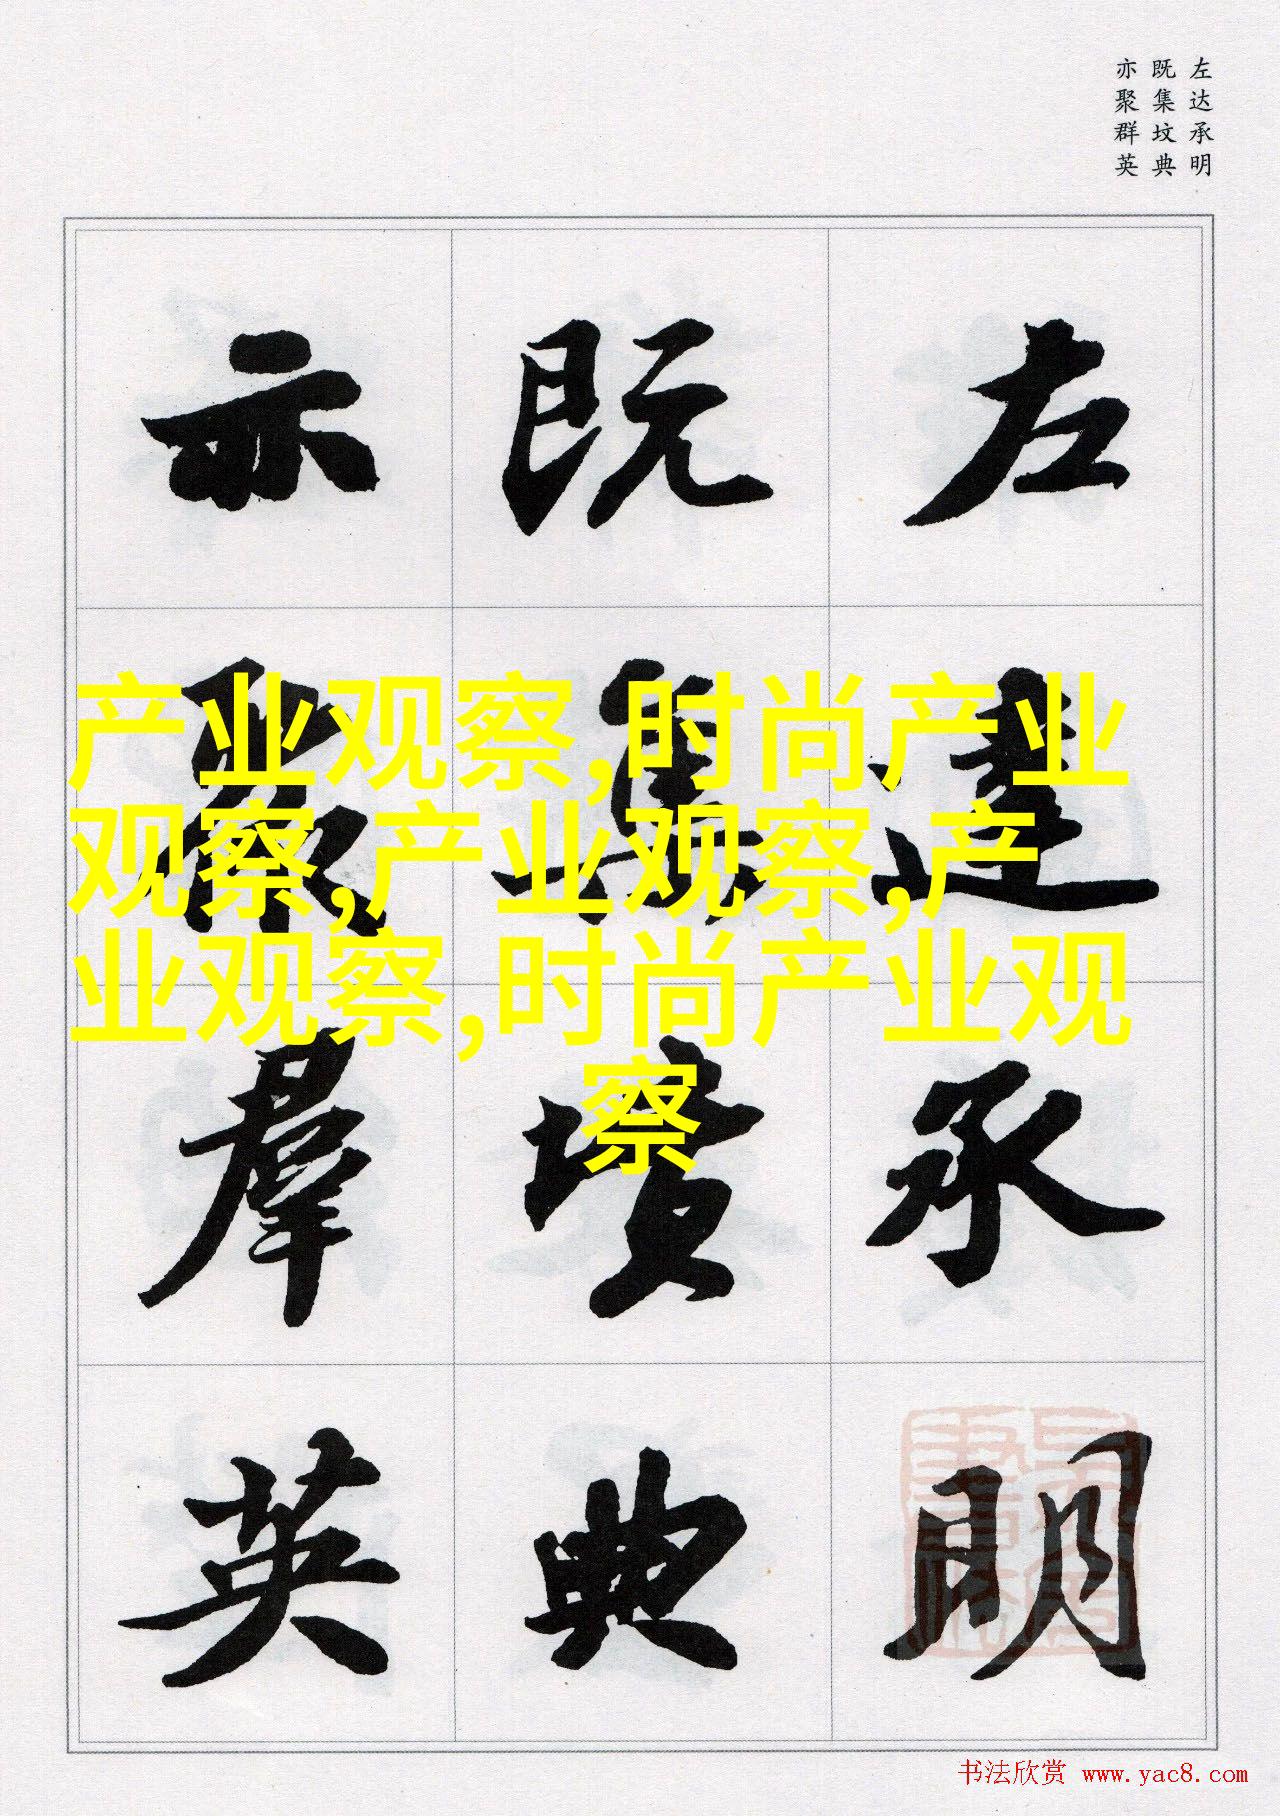 左达承明
既集坟典
亦聚群英
左達承明
既集墳典
亦聚群英
产业观察,时尚产业
观察,产业观察,产
业观察,时尚产业观
察
书法欣赏 www.yac8.com